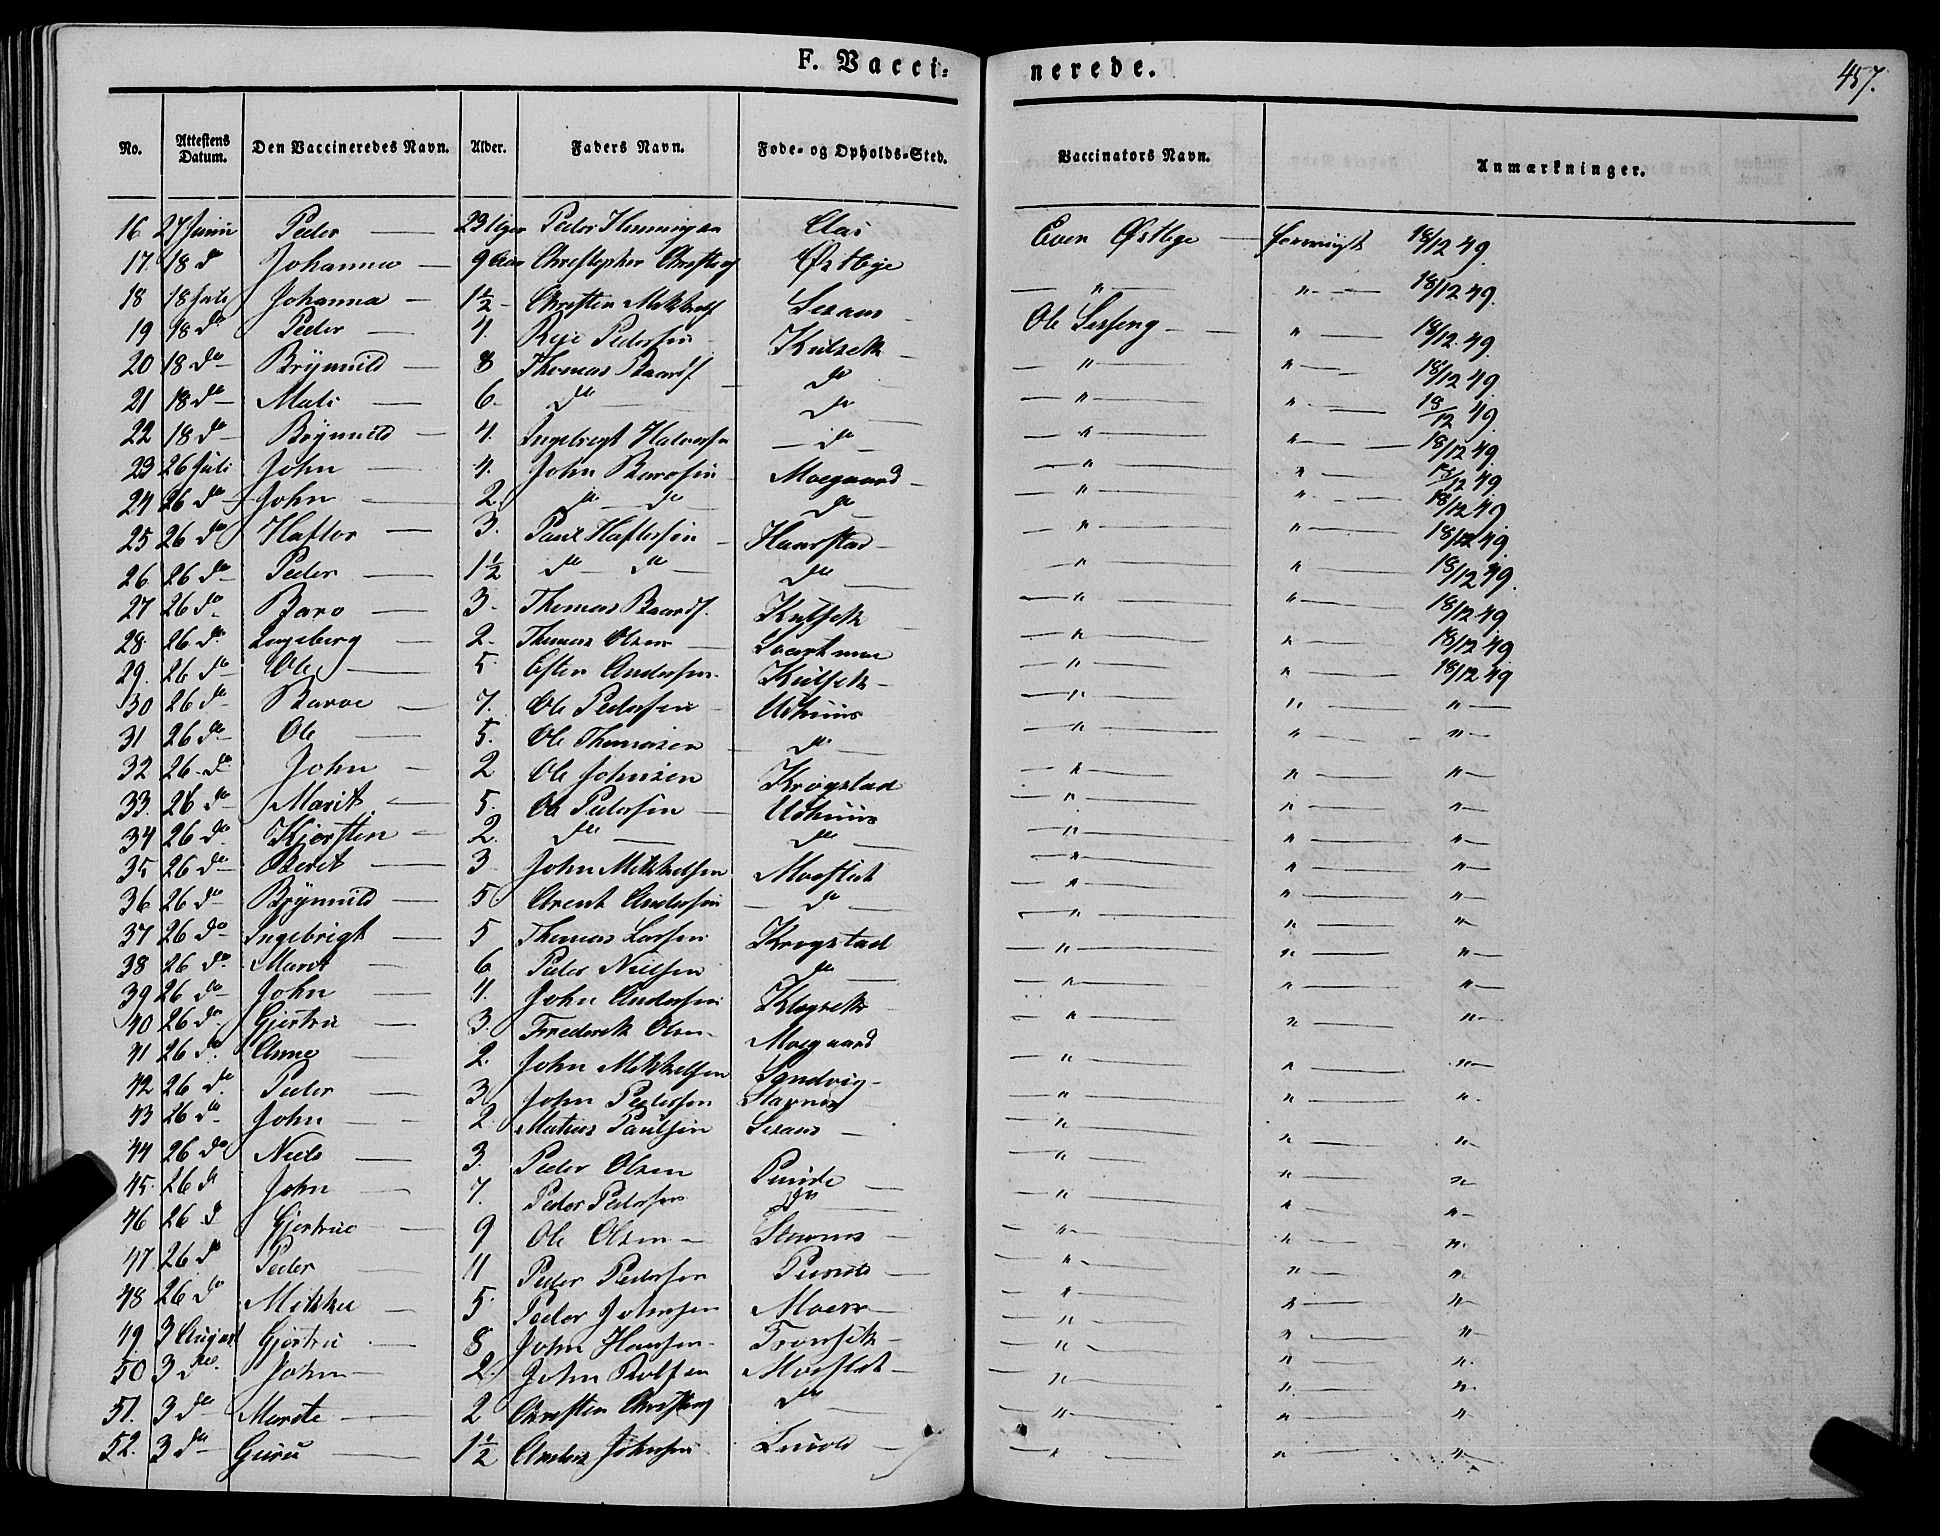 F. Vacci=
nerede.
457.
No. Attestens Datum. Den Vaccineredes Navn. Alder. Faders Navn. Føde- og Opholds-Sted. Vaccinators Navn. Anmærkninger.
16 27 Junii Peder — 23 Uger Peder Henningsen Aas Even Østbye — 18/12 49.
17 18 do Johanna — 9 Aar Christopher Østbye — " — " — 18/12 49.
18 18 Juli Johanna — 1½ - Christen Mikkels — Ole — " — 18/12 49.
19 18 do Peder — 4. Pedersen Kulsek — " — " — 18/12 49.
20 18 do Brynnild — 8 Thomas Baards. — do — " — " — 18/12 49.
21 18 do — Mali — 6. do — do — " — " — 18/12 49.
22 18 do — Brynnild — 4. Ingebrigt Halvorsen — do — " — " — 18/12 49
23 26 Juli John — 4. John Baardsen Moegaard — " — " — 18/12 49
24 26 do John — 2. do — do — do — " — " — 18/12 49
25 26 do Haftor — 3. Paul Haftorsen Haarstad — " — " — 18/12 49.
26 26 do — Peder — 1½ do — do — do — " — " — 18/12 49.
27 26 do Baro — 3. Thomas Baards. Kulsek — " — " — 18/12 49
28 26 do Ingeborg — 2. Thomas Olsen — " — " — 18/12 49
29. 26 do Ole — 5. Esten Andersen. Kulsek — " — " — 18/12 49
30 26 do Baroe — 7. Ole Pedersen Udhuus — " — " — " —
31 26 do — Ole — 5. Ole Thomasen — do — " — " — " —
32 26 do John — 2 Ole Johnsen Krogstad — " — " — " —
33. 26 do — Marit — 5. Ole Pedersen — Udhuus — " — " — " —
34 26 do Kjersten — 2. do — do — " — " — " —
35 26 do — Beret — 3 John Mikkelsen Moeslet — " — " — " —
36 26 do Brynnild — 5. Arent Andersen — do — " — " — " —
37 26 do Ingebrigt — 5 Thomas Larsen Krogstad — " — " — " —
38 26 do Marit — 6 Peder Nielsen do — " — " — " —
39 26 do — John — 4. John Andersen — " — " — " —
40 26 do Gjertrue — 3. Frederik Olsen — Moegaard — " — " — " —
41 26 do Arne — 2. John Mikkelsen Sandvig — " — " — " —
42 26 do Peder — 3. John Pedersen — " — " — " —
43 26 do John — 2. Mathias Paulsen — " — " — " —
44 26 do Niels — 3. Peder Olsen — " — " — " —
45. 26 do John — 7. Peder Pedersen do — " — " — " —
46 26 do Gjertrue — 9 Ole Olsen — " — " — " —
47. 26 do Peder — 11 Peder Pedersen — " — " — " —
48 26 do Mikkel — 5. Peder Johnsen — " — " — " —
49 3 August Gjertru — 8 John Hansen — " — " — " —
50 3 do. John — 2. John Rolfsen Moeslet — " — " — " —
51. 3 do Marite — 2 Christen do — " — " — " —
52. 3 do — Guru — 1½ Anders Johnsen — " — " — " —